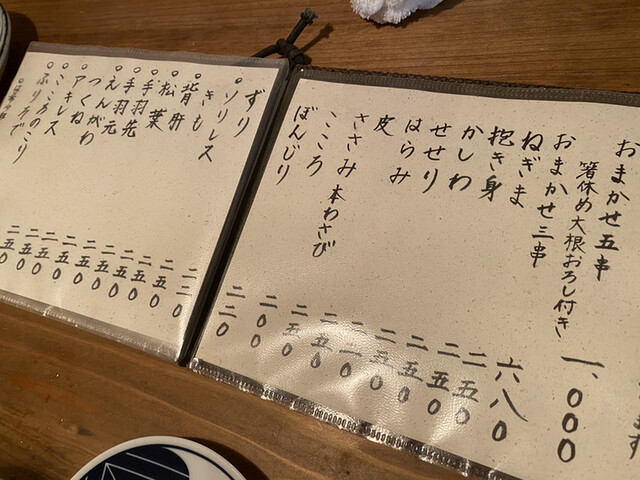 おまかせ五串
箸休め大根おろし付き
一、〇〇〇
おまかせ三串
六八〇
ねぎま
二五〇
抱き身
二五〇
かしわ
二五〇
せせり
二五〇
はらみ
皮
ささみ 本わさび
二五〇
こころ
二五〇
ぼんじり
二〇〇
二二〇
ずり
ソリレス
きも
背肝
松葉
手羽先
手羽元
えんがわ
つくね
アキレス
こころのこり
ふりそで
二五〇
二五〇
二五〇
二五〇
二五〇
二五〇
二五〇
二五〇